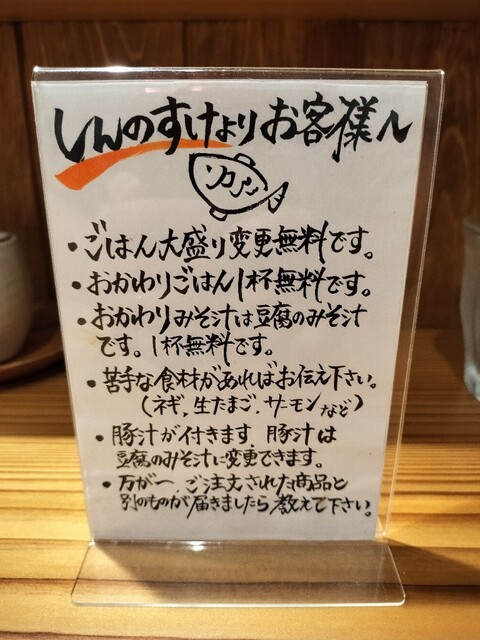 しんのすけよりお客様へ
・ごはん大盛り変更無料です。
・おかわりごはん1杯無料です。
・おかわりみそ汁は豆腐のみそ汁
です。1杯無料です。
・苦手な食材があればお伝え下さい。
(ネギ,生たまご,サーモンなど)
・豚汁が付きます,豚汁は
豆腐のみそ汁に変更できます。
・万が一,ご注文された商品と
別のものが届きましたら教えて下さい。